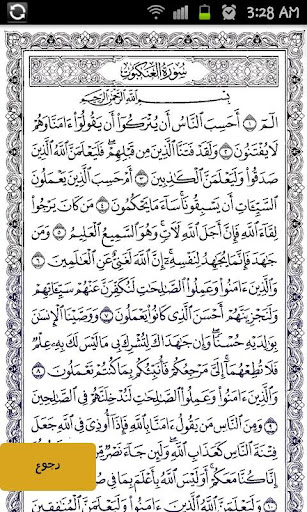 3:28 AM
سُورَةُ العَنكَبُوتِ
بِسْمِ اللَّهِ الرَّحْمَٰنِ الرَّحِيمِ
الٓمٓ ١ أَحَسِبَ النَّاسُ أَن يُتْرَكُوا أَن يَقُولُوا ءَامَنَّا وَهُمْ
لَا يُفْتَنُونَ ٢ وَلَقَدْ فَتَنَّا الَّذِينَ مِن قَبْلِهِمْ فَلَيَعْلَمَنَّ اللَّهُ الَّذِينَ
صَدَقُوا وَلَيَعْلَمَنَّ الْكَاذِبِينَ ٣ أَمْ حَسِبَ الَّذِينَ يَعْمَلُونَ
السَّيِّئَاتِ أَن يَسْبِقُونَا سَاءَ مَا يَحْكُمُونَ ٤ مَن كَانَ يَرْجُوا
لِقَاءَ اللَّهِ فَإِنَّ أَجَلَ اللَّهِ لَآتٍ وَهُوَ السَّمِيعُ الْعَلِيمُ ٥ وَمَن
جَاهَدَ فَإِنَّمَا يُجَاهِدُ لِنَفْسِهِ إِنَّ اللَّهَ لَغَنِيٌّ عَنِ الْعَالَمِينَ ٦
وَالَّذِينَ ءَامَنُوا وَعَمِلُوا الصَّالِحَاتِ لَنُكَفِّرَنَّ عَنْهُمْ سَيِّئَاتِهِمْ
وَلَنَجْزِيَنَّهُمْ أَحْسَنَ الَّذِي كَانُوا يَعْمَلُونَ ٧ وَوَصَّيْنَا الْإِنسَانَ
بِوَالِدَيْهِ حُسْنًا وَإِن جَاهَدَاكَ لِتُشْرِكَ بِي مَا لَيْسَ لَكَ بِهِ عِلْمٌ
فَلَا تُطِعْهُمَا إِلَيَّ مَرْجِعُكُمْ فَأُنَبِّئُكُم بِمَا كُنتُمْ تَعْمَلُونَ ٨
وَالَّذِينَ ءَامَنُوا وَعَمِلُوا الصَّالِحَاتِ لَنُدْخِلَنَّهُمْ فِي الصَّالِحِينَ
٩ وَمِنَ النَّاسِ مَن يَقُولُ ءَامَنَّا بِاللَّهِ فَإِذَا أُوذِيَ فِي اللَّهِ جَعَلَ
فِتْنَةَ النَّاسِ كَعَذَابِ اللَّهِ وَلَئِن جَاءَ نَصْرٌ مِّن
إِنَّا كُنَّا مَعَكُمْ أَوَلَيْسَ اللَّهُ بِأَعْلَمَ بِمَا فِي
١٠ وَلَيَعْلَمَنَّ اللَّهُ الَّذِينَ ءَامَنُوا وَلَيَعْلَمَنَّ الْمُنَافِقِينَ
رجوع